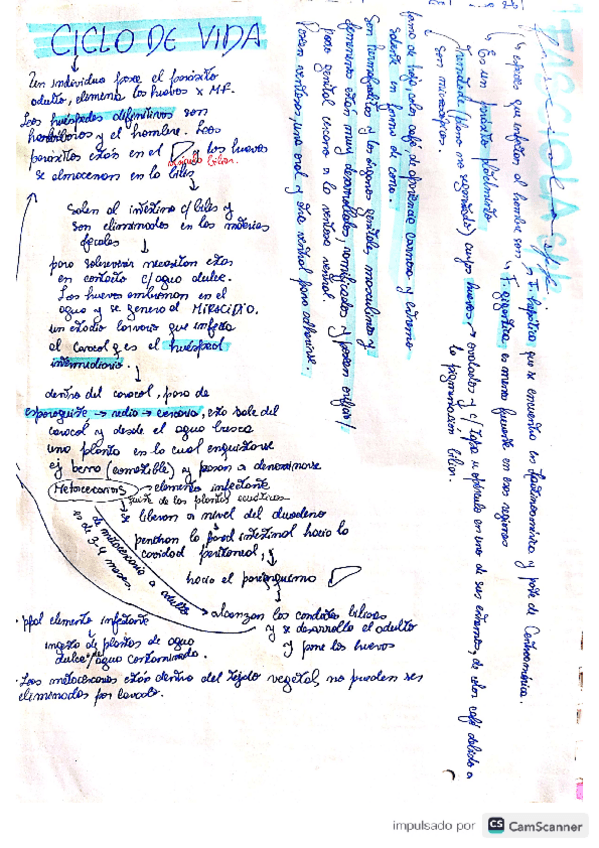 FASCIOLA spp
Fasciola spp.
↳ especies que infectan al hombre son → F. hepática que se encuentra en Latinoamérica y parte de Centroamérica.
↳ F. gigantica, es menos frecuente en esas regiones
↳ Es un parásito Platelminto
Trematode (plano no segmentado) cuyos huevos → ovalados y c/ tapa u opérculo en uno de sus extremos, de color café debido a
son microscópicos.
la pigmentación biliar.
forma de hoja, color café de apariencia carnosa y extremo
saliente en forma de cono.
Son hermafroditas y los órganos genitales masculinos y
femeninos están muy desarrollados, ramificados y poseen orificio/
poro genital cercano a la ventosa ventral.
Poseen ventosas, una oral y otra ventral para adherirse.
CICLO DE VIDA
Un individuo posee el parásito
adulto, elimina los huevos x MF.
Los huéspedes definitivos son
herbívoros y el hombre. Los
parásitos están en el y los huevos
conducto biliar.
se almacenan en la bilis
Salen al intestino c/ bilis y
son eliminados en las materias
fecales
para sobrevivir necesitan estar
en contacto c/ agua dulce.
Los huevos embrionan en el
agua y se genera el MIRACIDIO.
un estadio larvario que infecta
al caracol q es el huésped
intermediario.
dentro del caracol, pasa de
esporoquiste → redia → cercaria, esto sale del
caracol y desde el agua busca
una planta en la cual enquistarse
ej berro (comestible) y pasan a denominarse
Metacercarias → elemento infectante
quiste de las plantas acuáticas
se liberan a nivel del duodeno
perforan la pared intestinal hacia la
cavidad peritoneal,
hacia el parénquima
de metacercaria a adulto
es de 3-4 meses.
alcanzan los conductos biliares
y se desarrolla el adulto
y pone los huevos
· ppal elemento infectante
ingesta de plantas de agua
dulce/agua contaminada.
· Las metacercarias están dentro del tejido vegetal, no pueden ser
eliminadas por lavado.
impulsado por CS CamScanner